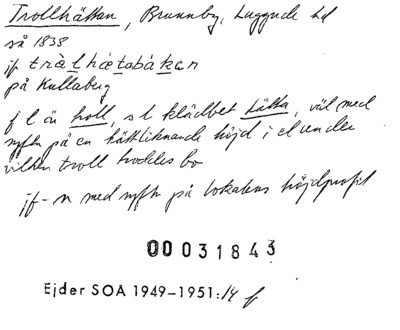 Trollhättan, Brunnby, Luggude hd
så 1838
jfr trålhætabákan
på Kullaberg
f l är troll, s l klädbet hätta, väl med
syftn på en hättliknande höjd i el under
vilken troll troddes bo
jfr -n med syftn på lokalens höjdprofil
00031843
Ejder SOA 1949-1951:14 f